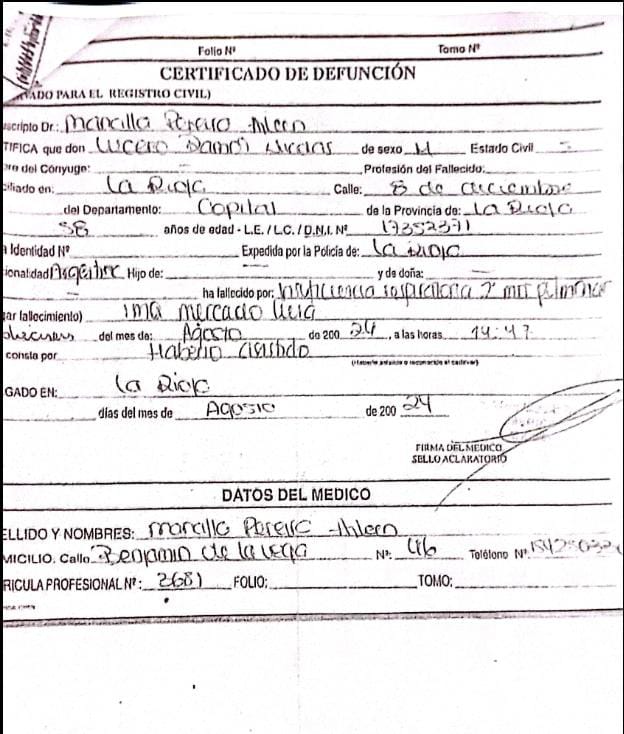 Folio Nº Tomo Nº
CERTIFICADO DE DEFUNCIÓN
VADO PARA EL REGISTRO CIVIL)
scripto Dr.: Mancilla Pereira Ahleen
TIFICA que don Lucero Ramón Nicolas de sexo M Estado Civil S
re del Cónyuge: Profesión del Fallecido:
ciliado en: La Rioja Calle: 8 de diciembre
del Departamento: Capital de la Provincia de: La Rioja
58 años de edad - L.E. / L.C. / D.N.I. Nº 17352371
a Identidad Nº Expedida por la Policía de: La Rioja
ionalidad Argentino Hijo de: y de doña:
ha fallecido por: insuficiencia respiratoria 2º mtt pulmonar
ar fallecimiento) IMA mercado luis
del mes de: Agosto de 200 24, a las horas 14:47
consta por Haberlo asistido
(Haberle asistido o reconocido el cadáver)
GADO EN: La Rioja
días del mes de Agosto de 200 24
FIRMA DEL MEDICO
SELLO ACLARATORIO
DATOS DEL MEDICO
ELLIDO Y NOMBRES: Mancilla Pereira Ahleen
MICILIO. Calle Benjamin de la vega Nº: 46 Teléfono Nº
RICULA PROFESIONAL Nº: 3681 FOLIO: TOMO: